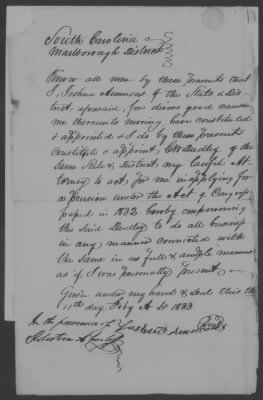 South Carolina
Marlborough District
Know all men by these presents that
I, Joshua Ammons of the State & Dis-
trict, aforesaid, for divers good causes
me thereunto moving, have constituted
& appointed & I do by these presents
constitute & appoint, CW Dudley of the
same State & District my Lawful At-
torney to act, for me in applying for
a pension under the Act of Congress
passed in 1832, hereby empowering
the said Dudley to do all business
in any manner connected with
the same in as full & ample manner
as if I was personally present
Given under my hand & seal this the
11th day Feby A D 1833.
In the presence of Joshua Ammons Seal